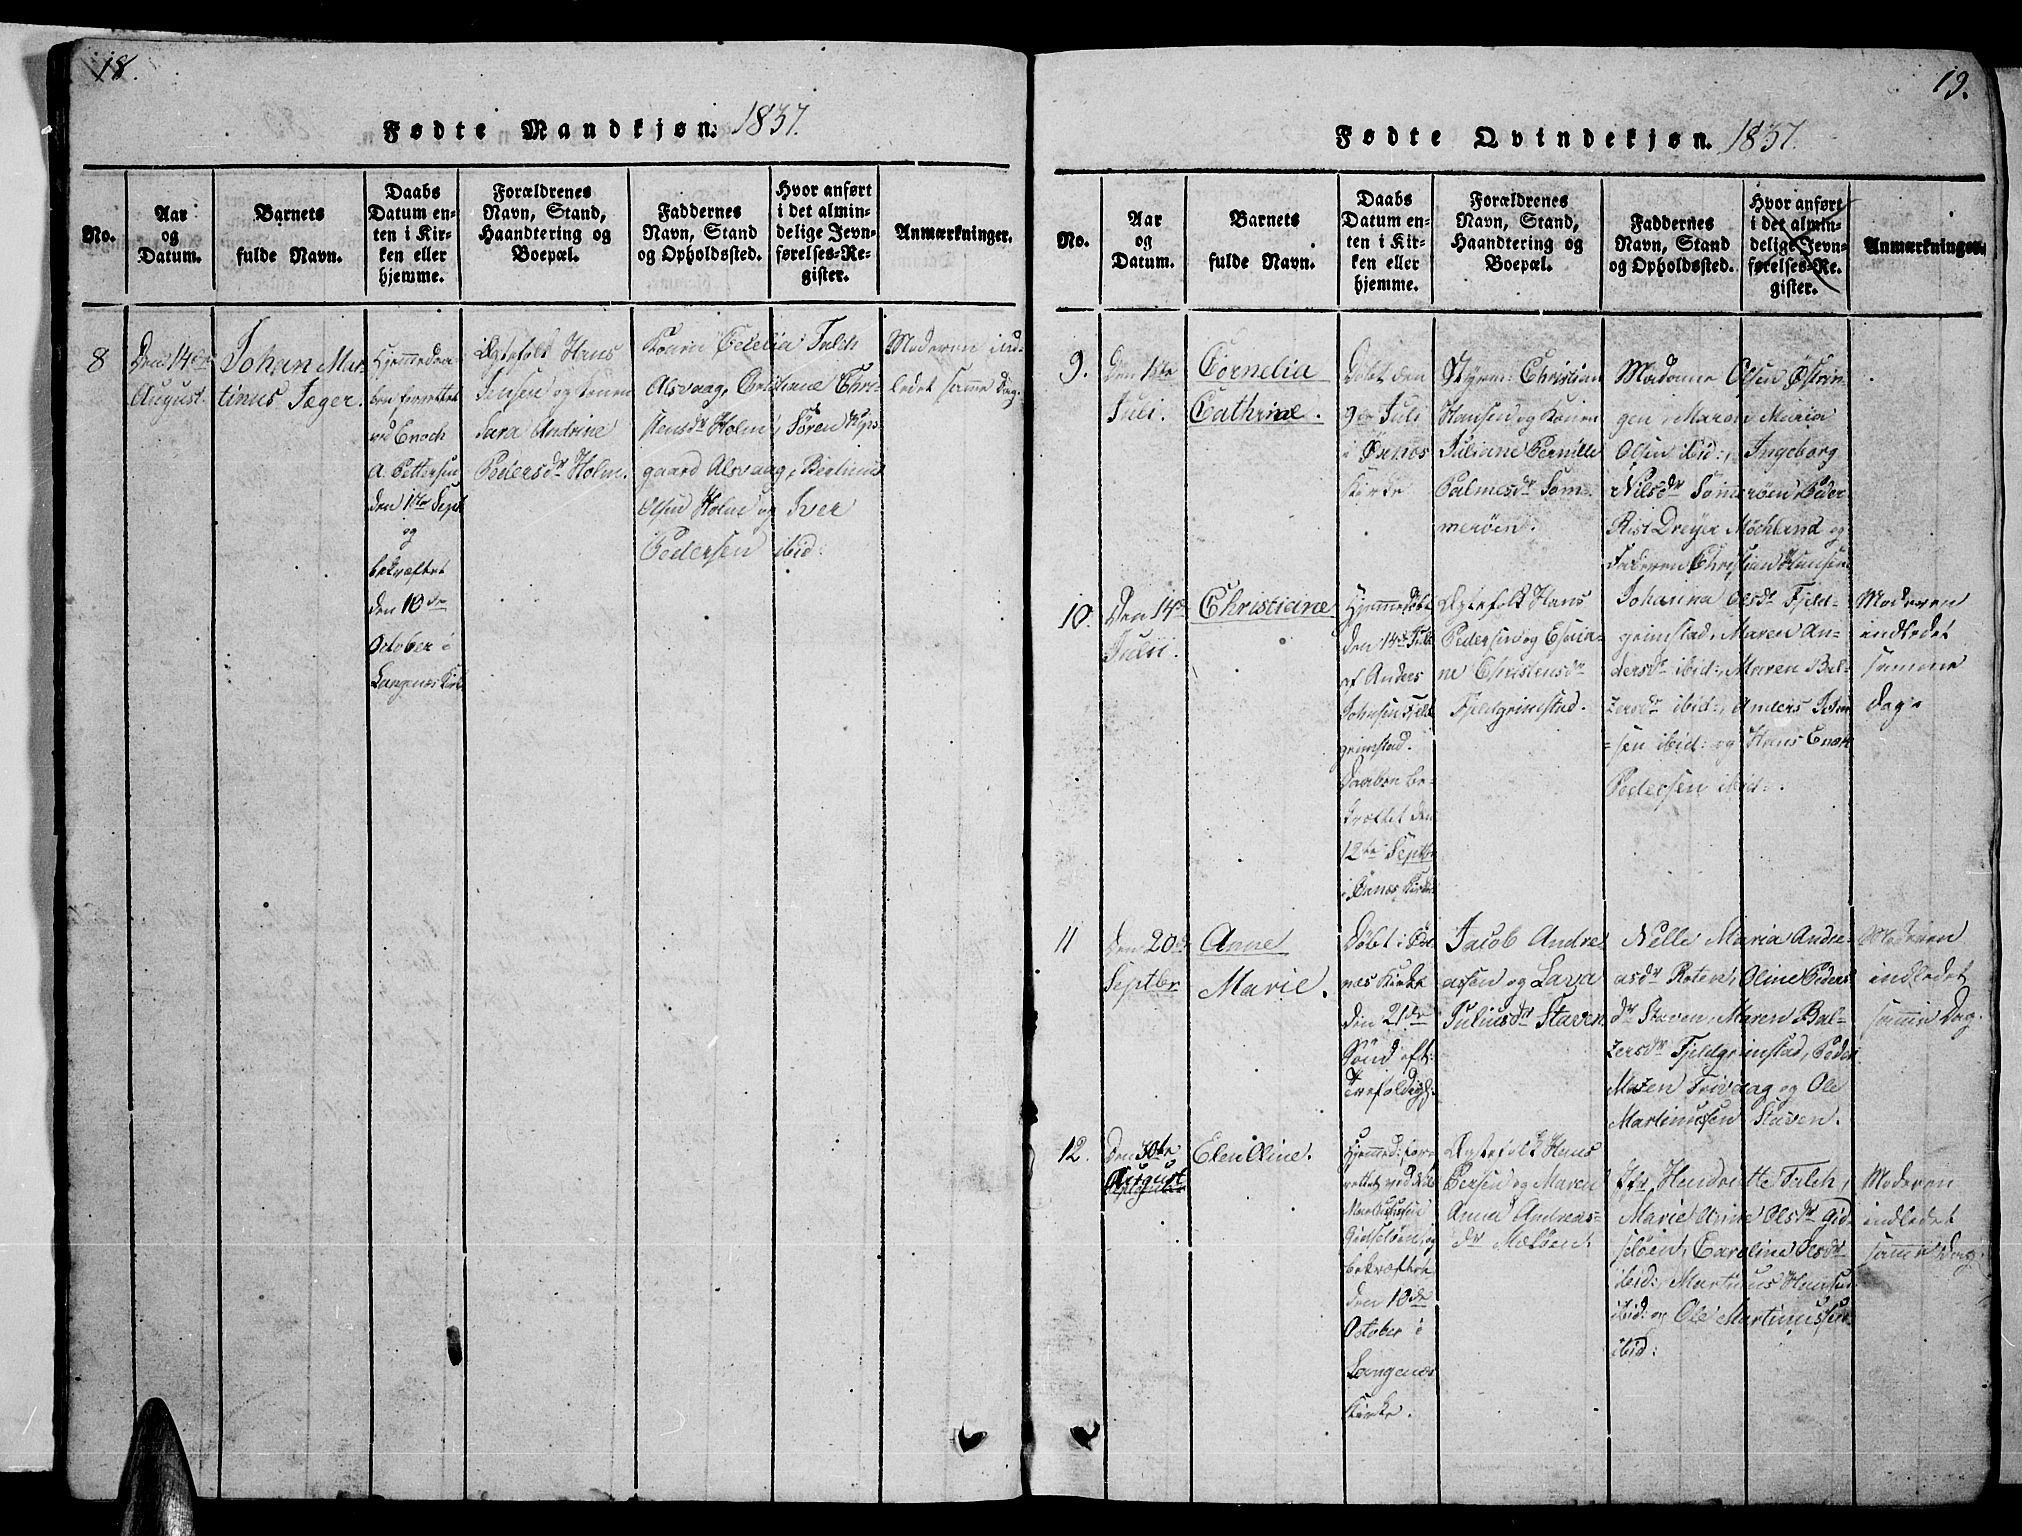 18.
Fødte Mandkjøn. 1837.
No.
Aar
og
Datum.
Barnets
fulde Navn.
Daabs
Datum en-
ten i Kir-
ken eller
hjemme.
Forældrenes
Navn, Stand,
Haandtering og
Boepæl.
Faddernes
Navn, Stand
og Opholdssted.
Hvor anført
i det almin-
delige Jevn-
førelses-Re-
gister.
Anmærkninger.
8
Den 14de
August.
Johan Mar-
tinus Jæger.
Hjemmedaa
ben forrettet
ved Enoch
A. Pettersen
den 1ste Sept
og
bekræftet
den 10de
October i
Langenæs Kirk
Ægtefolk Hans
Jensen og Konen
Sara Andrine
Pedersdr Holm.
Konen Cecelia Falch
Alsvaag, Christiane Chri-
stensdr Holm, Sören
gaard Alsvaag, Berlinus
Olsen Holm og Iver
Pedersen ibid:
Moderen ind-
ledet samme Dag.
19.
Fødte Qvindekjøn. 1837.
No.
Aar
og
Datum.
Barnets
fulde Navn.
Daabs
Datum en-
ten i Kir-
ken eller
hjemme.
Forældrenes
Navn, Stand,
Haandtering og
Boepæl.
Faddernes
Navn, Stand
og Opholdssted.
Hvor anført
i det almin-
delige Jevn-
førelses-Re-
gister.
Anmærkninger.
9.
Den 1ste
Juli.
Cornelia
Cathrine.
Döbt den
9de Juli
i Öxnæs
Kirke
Styrm: Christian
Hansen og Konen
Juliane Pernille
Palmesdr Som-
meröen.
Madame Olsen Östrin-
gen, Maren Maria
Olsen ibid:, Ingeborg
Nilsdr Sommeröen Peder
Rist Dreyer Möchland og
Faderen Christian Hansen
10.
Den 14de
Julii.
Christiane
Hjemmedöbt
den 14de Juli
af Anders
Johnsen Fjeld
grimstad.
Daaben be-
kræftet den
12te Septbr
i Öxnæs Kirke
Ægtefolk Hans
Pedersen og
ne Christensdr
Fjeldgrimstad.
Johanna Olsdr Fjeld-
grimstad, Maren An-
dersdr ibid:, Maren Bal-
zersdr ibid:, Anders John
sen ibid: og Hans
Pedersen ibid:.
Moderen
indledet
samme
Dag.
11
Den 20de
Septbr
Anne
Marie.
Döbt i Öx
næs Kirke
den 21de
Sönd eft:
Trefoldigh:
Jacob Andre
assen og Lava
Juliusdr Staven
Nelle Maria Andre-
asdr Roten, Oline Peders
dr Staven, Maren Bal-
zersdr Fjeldgrimstad, Peder
Mazen Frivaag og Ole
Martinussen Staven.
Moderen
indledet
samme Dag.
12.
Den 30te
August
Elen Oline.
Hjemmed: for-
rettet ved Ole
Martinussen
Gidslöen og
bekræftet
den 10de
October i
Langenæs
Kirke.
Ægtefolk Hans
Persen og Maren
Anna Andreas-
dr Melöen.
Jfr Hendrette Falch,
Marie Oline Olsdr Gid-
slöen, Caroline Olsdr
ibid: Martinus Hansen
ibid: og Ole Martinussen
ibid:
Moderen
indledet
samme Dag.